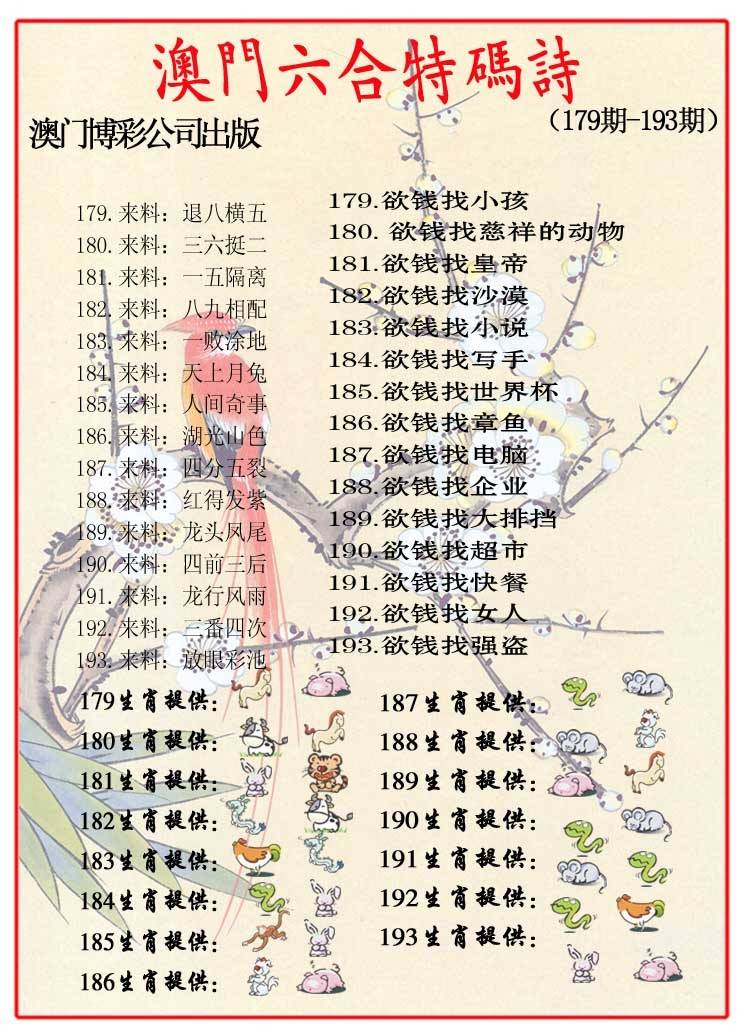 澳門六合特碼詩
澳门博彩公司出版
（179期-193期）
179.来料：退八横五
180.来料：三六挺二
181.来料：一五隔离
182.来料：八九相配
183.来料：一败涂地
184.来料：天上月兔
185.来料：人间奇事
186.来料：湖光山色
187.来料：四分五裂
188.来料：红得发紫
189.来料：龙头凤尾
190.来料：四前三后
191.来料：龙行风雨
192.来料：三番四次
193.来料：放眼彩池
179.欲钱找小孩
180. 欲钱找慈祥的动物
181.欲钱找皇帝
182.欲钱找沙漠
183.欲钱找小说
184.欲钱找写手
185.欲钱找世界杯
186.欲钱找章鱼
187.欲钱找电脑
188.欲钱找企业
189.欲钱找大排挡
190.欲钱找超市
191.欲钱找快餐
192.欲钱找女人
193.欲钱找强盗
179生肖提供：
180生肖提供：
181生肖提供：
182生肖提供：
183生肖提供：
184生肖提供：
185生肖提供：
186生肖提供：
187生肖提供：
188生肖提供：
189生肖提供：
190生肖提供：
191生肖提供：
192生肖提供：
193生肖提供：